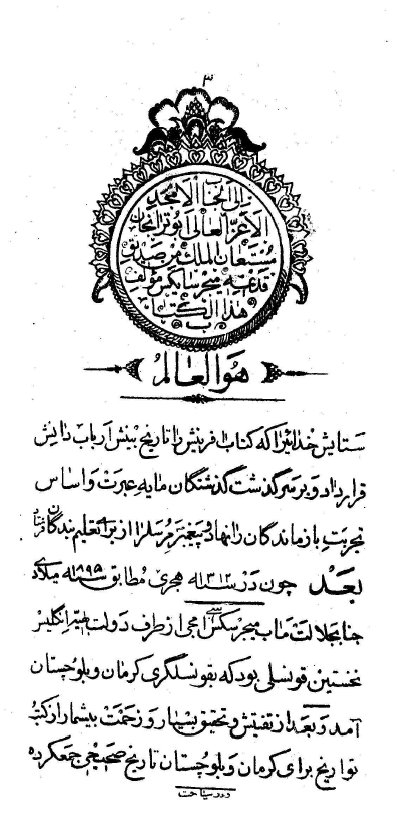 ۳
الی الجنا الامجد
الاعز العالی
من صدیق
میجر سایکس مؤلف
هذا الکتاب
هو العالم
ستایش خدائیرا که کتاب افرینش را تاریخ بینش ارباب دانش
قرارداد و بر سر گذشت گذشتگان مایهٔ عبرت و اساس
تجربت بازماندگان را نهاد و پیغمبر مرسلرا از برای تعلیم بندگان فرستاد
بعد چون در سنه ۱۳۱۲ هجری مطابق سنه ۱۸۹۵ میلادی
جنابجلالت ماب میجر سکس سی ام جی از طرف دولت بهیهٔ انگلیس
نخستین قونسلی بود که بقونسلگری کرمان و بلوچستان
آمد و بعد از تفتیش و تحقیق بسیار و زحمت بیشمار از کتب
تواریخ برای کرمان و بلوچستان تاریخ صحیحی جمعکرده